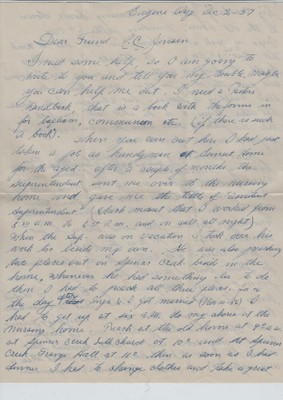 Eugene Oreg. Dec 2 - 57
Dear Friend C.C. Jensen
I need some help, so I am going to
write to you and tell you my trouble, maybe
you can help me out. I need a Pastors
Handbook, that is a book with the forms in
for baptism, communion etc. (if there is such
a book).
When you saw out here I had just
taken a job as handyman at Home
for the aged. after a couple of months the
superintendent sent me over to the nursing
home and gave me the title of "
Superintendent" (which meant that I worked from
5 a.m. to 5 a.m. and on call all night)
When the Supt was on vacation I took over his
work besides my own. He was also preaching
two places out in Spencer Creek besides in the
home, whenever he had something else to do
then I had to preach all three places. On
the day I got married (Nov)
I had to get up at six a.m. do my chores at the
Nursing home. Preach at the old home at 9
at Spencer Creek church at 10 and at Spencer
Creek Grange Hall at 11 then as soon as I had
dinner I had to change clothes and take a great